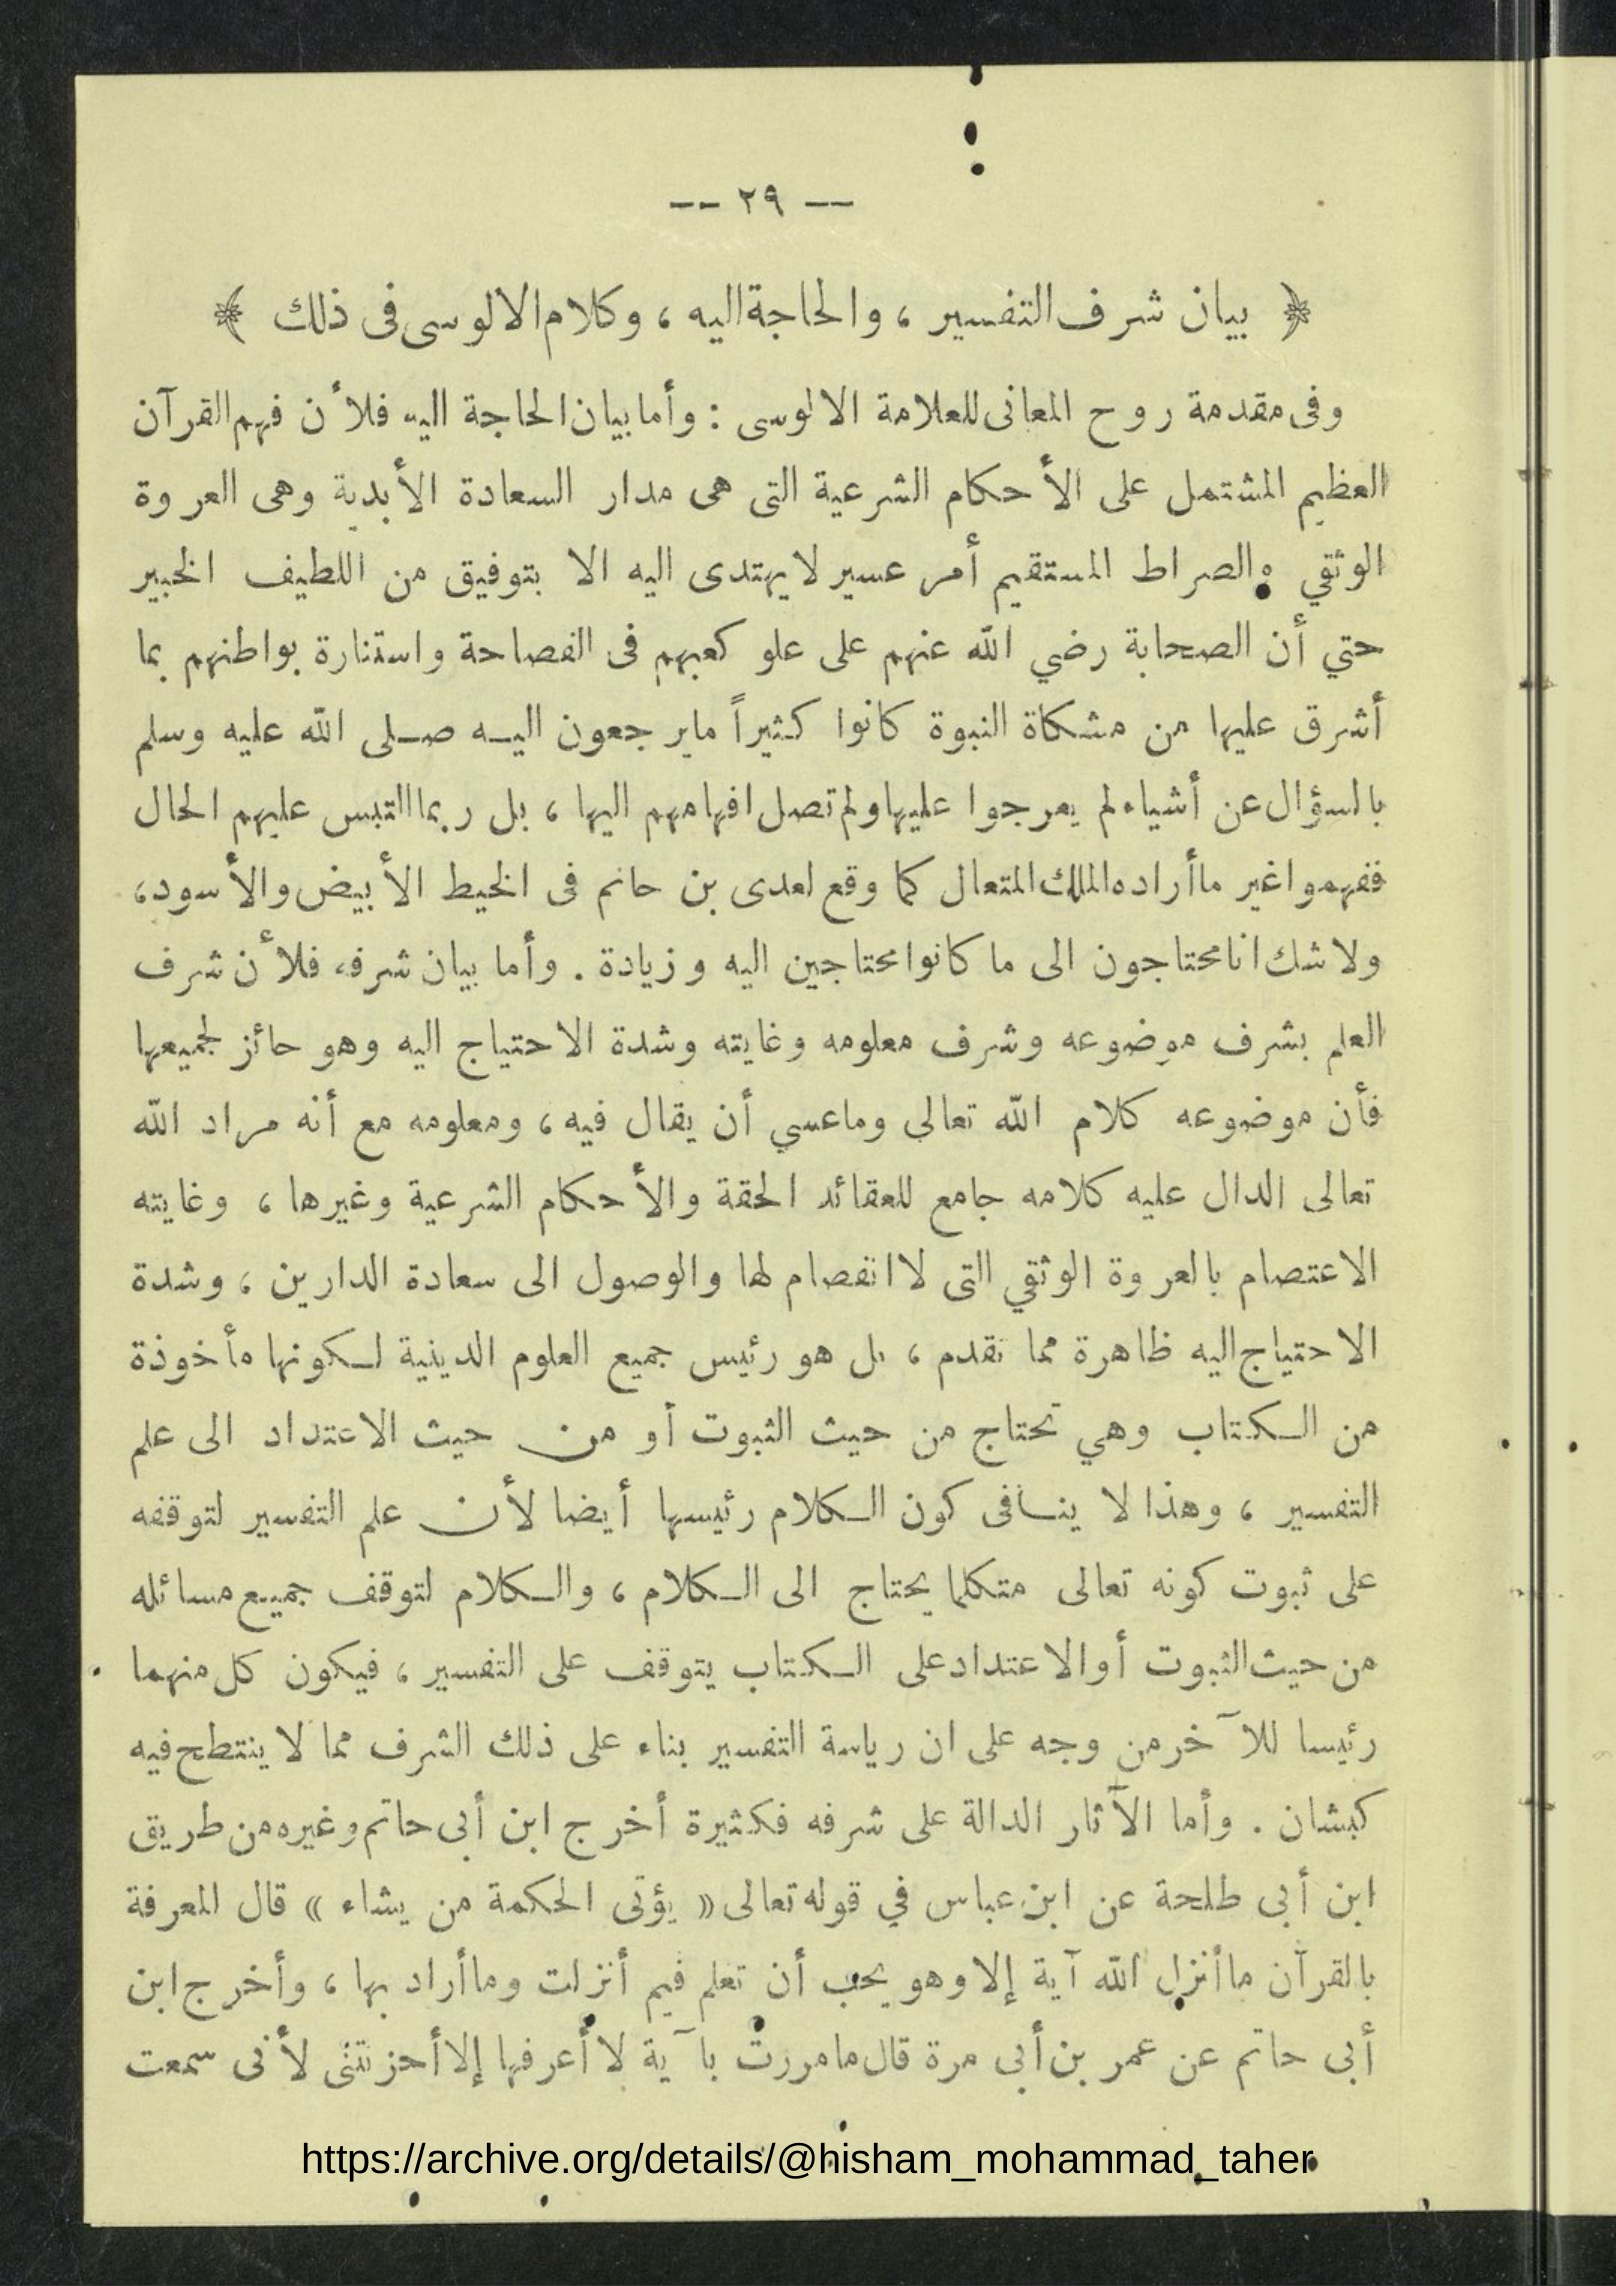 -- ٢٩ --
﴿ بيان شرف التفسير ، والحاجة اليه ، وكلام الالوسى فى ذلك ﴾
وفى مقدمة روح المعانى للعلامة الالوسى : وأما بيان الحاجة اليه فلأن فهم القرآن
العظيم المشتمل على الأحكام الشرعية التى هى مدار السعادة الأبدية وهى العروة
الوثقي والصراط المستقيم أمر عسير لا يهتدى اليه الا بتوفيق من اللطيف الخبير
حتي أن الصحابة رضي الله عنهم على علو كعبهم فى الفصاحة واستنارة بواطنهم بما
أشرق عليها من مشكاة النبوة كانوا كثيراً ما يرجعون اليه صلى الله عليه وسلم
بالسؤال عن أشياء لم يعرجوا عليها ولم تصل افهامهم اليها ، بل ربما التبس عليهم الحال
ففهموا غير ما أراده الملك المتعال كما وقع لعدى بن حاتم فى الخيط الأبيض والأسود ،
ولا شك انا محتاجون الى ما كانوا محتاجين اليه وزيادة . وأما بيان شرفه فلأن شرف
العلم بشرف موضوعه وشرف معلومه وغايته وشدة الاحتياج اليه وهو حائز لجميعها
فأن موضوعه كلام الله تعالى وماعسي أن يقال فيه ، ومعلومه مع أنه مراد الله
تعالى الدال عليه كلامه جامع للعقائد الحقة والأحكام الشرعية وغيرها ، وغايته
الاعتصام بالعروة الوثقي التى لا انفصام لها والوصول الى سعادة الدارين ، وشدة
الاحتياج اليه ظاهرة مما تقدم ، بل هو رئيس جميع العلوم الدينية لكونها مأخوذة
من الكتاب وهي تحتاج من حيث الثبوت أو من حيث الاعتداد الى علم
التفسير ، وهذا لا ينافى كون الكلام رئيسها أيضا لأن علم التفسير لتوقفه
على ثبوت كونه تعالى متكلما يحتاج الى الكلام ، والكلام لتوقف جميع مسائله
من حيث الثبوت أو الاعتداد على الكتاب يتوقف على التفسير ، فيكون كل منهما
رئيسا للآخر من وجه على ان رياسة التفسير بناء على ذلك الشرف مما لا ينتطح فيه
كبشان . وأما الآثار الدالة على شرفه فكثيرة أخرج ابن أبى حاتم وغيره من طريق
ابن أبى طلحة عن ابن عباس في قوله تعالى « يؤتى الحكمة من يشاء » قال المعرفة
بالقرآن ما أنزل الله آية إلا وهو يحب أن تعلم فيم أنزلت وما أراد بها ، وأخرج ابن
أبى حاتم عن عمر بن أبى مرة قال ما مررت بآية لا أعرفها إلا أحزنتنى لأنى سمعت
https://archive.org/details/@hisham_mohammad_taher